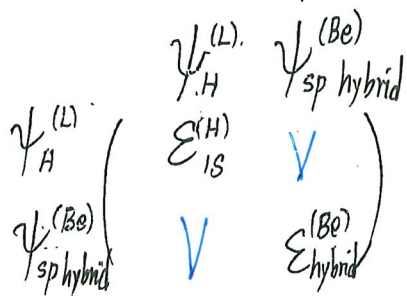 ψ_H^(L). ψ_sp hybrid^(Be)
ψ_H^(L) ε_1S^(H) V
ψ_sp hybrid^(Be) V ε_hybrid^(Be)